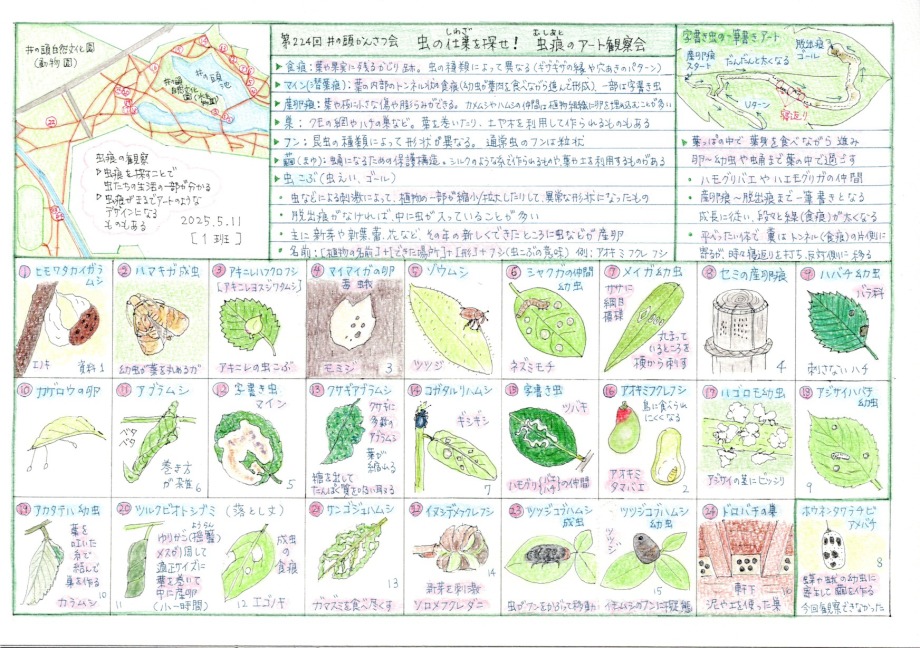 井の頭自然文化園
(動物園)
井の頭
池
井の頭
自然文化
園(水生物
園)
虫痕の観察
▶虫痕を探すことで
虫たちの生活の一部が分かる
▶虫痕がまるでアートのような
デザインになる
ものもある
2025.5.11
[1班]
しわざ むしあと
第224回 井の頭かんさつ会 虫の仕業を探せ! 虫痕のアート観察会
▶食痕:葉や果実に残るかじり跡。虫の種類によって異なる(ギザギザの縁や穴あきのパターン)
▶マイン(潜葉痕):葉の内部のトンネル状の食痕(幼虫が葉肉を食べながら進んで形成)、一部は字書き虫
▶産卵痕:葉や枝に小さな傷や膨らみができる。カメムシやハムシの仲間は植物組織に卵を埋め込むことが多い
▶巣:クモの網やハチの巣など。葉を巻いたり、土や木を利用して作られるものもある
▶フン:昆虫の種類によって形状が異なる。通常虫のフンは粒状
▶繭(まゆ):蛹になるための保護構造。シルクのような糸で作られるものや葉や土を利用するものがある
▶虫こぶ(虫えい、ゴール)
・虫などによる刺激によって、植物の一部が縮小/拡大したりして、異常な形状になったもの
・脱出痕がなければ、中に虫が入っていることが多い
・主に新芽や新葉、蕾、花など、その年の新しくできたところに虫などが産卵
・名前:[植物の名前]+[できた場所]+[形]+フシ(虫こぶの意味) 例:アオキミフクレフシ
字書き虫の一筆書きアート
産卵痕
スタート
だんだんと太くなる
脱出痕
ゴール
Uターン
寝返り
▶葉っぱの中で葉身を食べながら進み
卵〜幼虫や蛹まで葉の中で過ごす
・ハモグリバエやハエモグリガの仲間
・産卵痕〜脱出痕まで一筆書きとなり
成長に従い、段々と線(食痕)が太くなる
・平べったい体で糞はトンネル(食痕)の片側に
寄るが、時々寝返りを打ち、反対側に移る
① ヒモワタカイガラ
ムシ
エノキ 資料1
② ハマキガ成虫
幼虫が葉を丸めるガ
③ アキニレハフクロフシ
[アキニレヨスジワタムシ]
アキニレの虫こぶ
④ マイマイガの卵
毒蛾
モミジ 3
⑤ ゾウムシ
ツツジ
⑥ シャクガの仲間
幼虫
ネズミモチ
⑦ メイガ幼虫
ササに
網目
模様
丸まって
いるところを
横から刺す
⑧ セミの産卵痕
4
⑨ ハバチ幼虫
バラ科
刺さないハチ
⑩ カゲロウの卵
⑪ アブラムシ
ベタ
ベタ
巻き方
が雑 6
⑫ 字書き虫
マイン
5
⑬ クサギアブラムシ
クサギに
多数の
アブラムシ
葉が
縮れる
糖を出して
たんぱく質を吸い取る
⑭ コガタルリハムシ
ギシギシ
7
⑮ 字書き虫
ツバキ
⑯ アオキミフクレフシ
鳥に食べられ
にくくなる
アオキミ
タマバエ 2
⑰ ハゴロモ幼虫
アジサイの茎にビッシリ
⑱ アジサイハバチ
幼虫
9
⑲ アカタテハ幼虫
葉を
吐いた
糸で
結んで
巣を作る
カラムシ 10
⑳ ツルクビオトシブミ (落とし文)
ようらん
ゆりかご(揺籃)
メスが1匹して
適正サイズに
葉を巻いて
中に産卵
(1〜1時間)
成虫
の
食痕
11 12 エゴノキ
㉑ サンゴジュハムシ
13
ガマズミを食べ尽くす
㉒ イヌシデメフクレフシ
14
新芽を刺激
ソロメフクレダニ
㉓ ツツジコブハムシ
成虫
ツツジ
ツツジコブハムシ
幼虫
15
虫がフンをかぶって移動:イモムシのフンに擬態
㉔ ドロバチの巣
軒下 16
泥や土を使った巣
ホウネンタワラチビ
アメバチ
8
蝶や蛾の幼虫に
寄生して繭を作る
今回観察できなかった